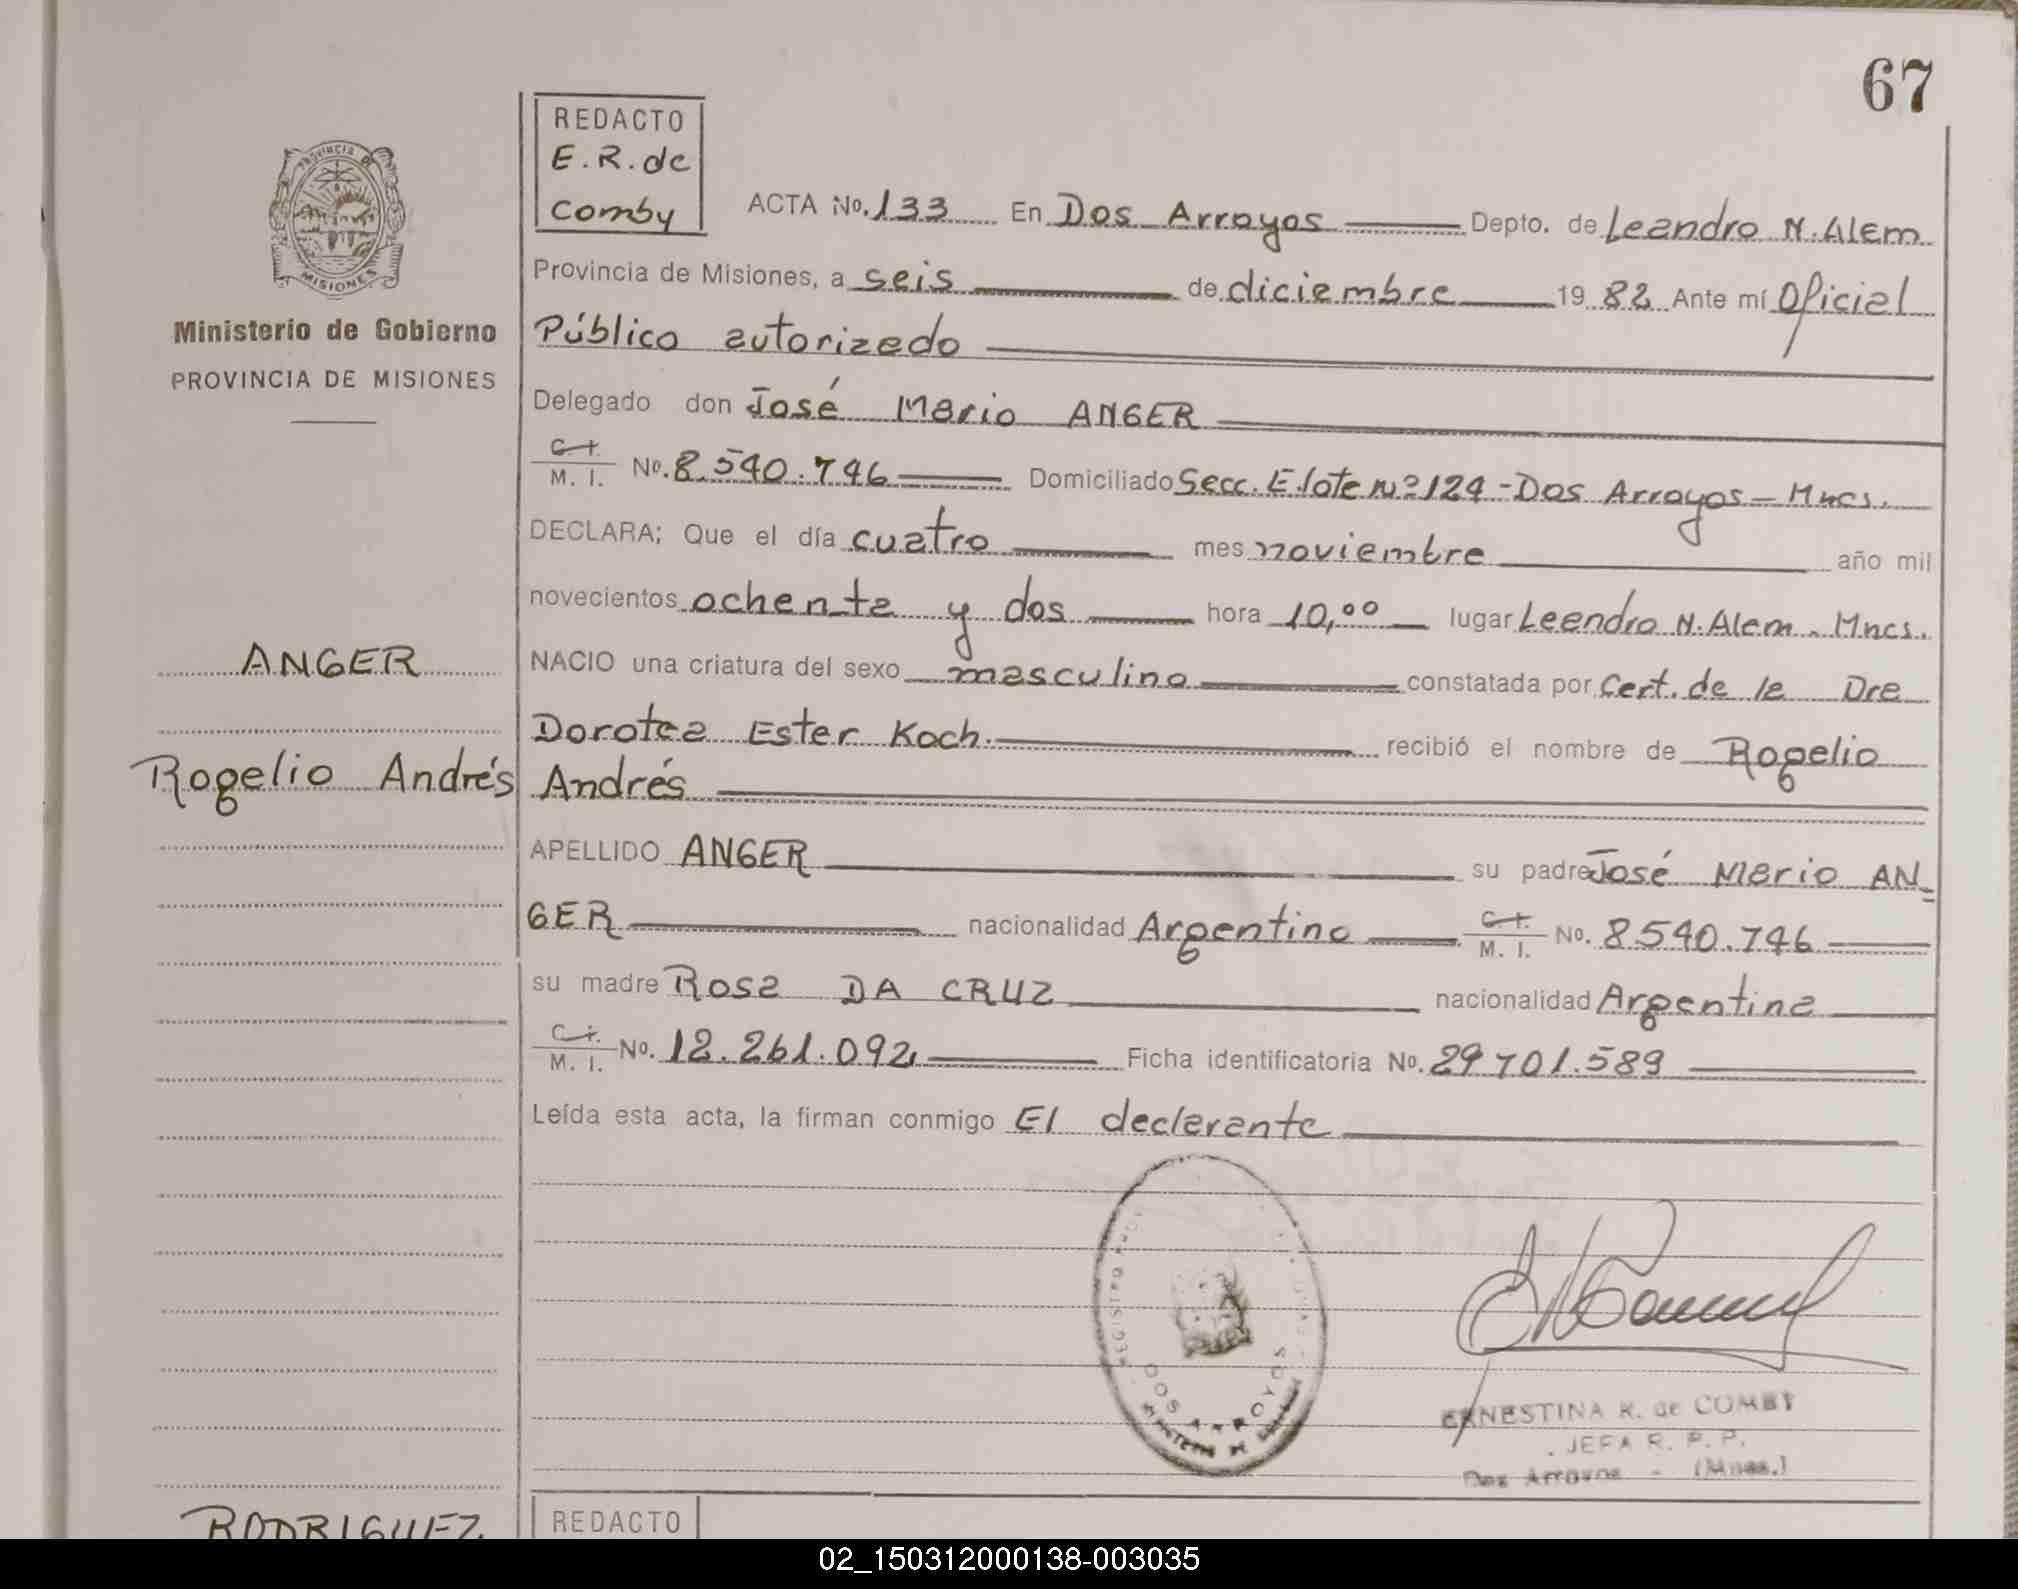 67
REDACTO
E.R. de
Comby
ACTA No. 133 En Dos Arroyos Depto. de Leandro N. Alem
Provincia de Misiones, a seis de diciembre 19 82 Ante mí Oficial
Público autorizado
Delegado don José Mario ANGER
C. I. M. I. No. 8.540.746 Domiciliado Secc. E lote Nº 124 - Dos Arroyos - Mnes.
DECLARA; Que el día cuatro mes noviembre año mil
novecientos ochenta y dos hora 10,00 lugar Leandro N. Alem - Mnes.
NACIO una criatura del sexo masculino constatada por Cert. de la Dra
Dorotea Ester Koch. recibió el nombre de Rogelio
Andrés
APELLIDO ANGER su padre José Mario AN-
GER nacionalidad Argentino C. I. M. I. No. 8540.746
su madre Rosa DA CRUZ nacionalidad Argentina
C. I. M. I. No. 12.261.092 Ficha identificatoria No. 29701.589
Leída esta acta, la firman conmigo El declarante
PROVINCIA DE
MISIONES
Ministerio de Gobierno
PROVINCIA DE MISIONES
ANGER
Rogelio Andrés
DOS ARROYOS
ERNESTINA R. de COMBY
JEFA R. P. P.
Dos Arroyos - (Mnes.)
RODRIGUEZ
REDACTO
02_150312000138-003035